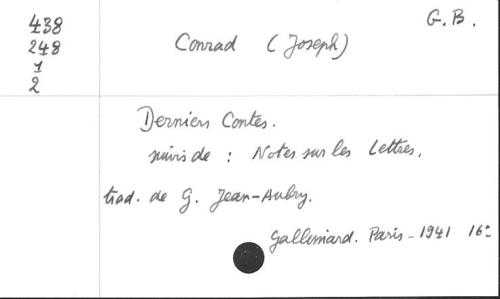 438
248
1
2
G. B.
Conrad (Joseph)
Derniers Contes.
suivis de : Notes sur les Lettres.
trad. de G. Jean-Aubry.
Gallimard. Paris - 1941 16°